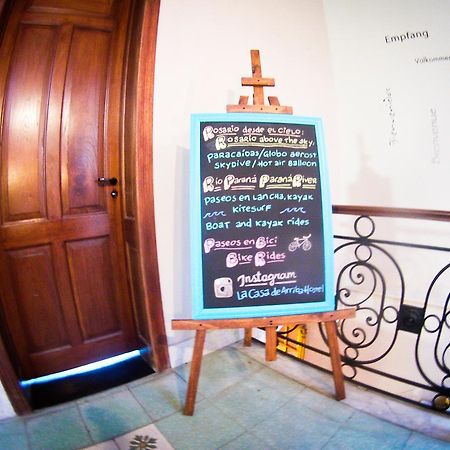 Empfang
Volkommen
Bienvenidos
Bienvenue
Rosario desde el cielo:
Rosario above the sky:
Paracaidas/Globo aerost
Skydive / Hot air Balloon
Río Paraná Paraná River
Paseos en Lancha, Kayak
Kitesurf
Boat and Kayak rides
Paseos en Bici
Bike Rides
Instagram
La Casa de Arriba Hostel